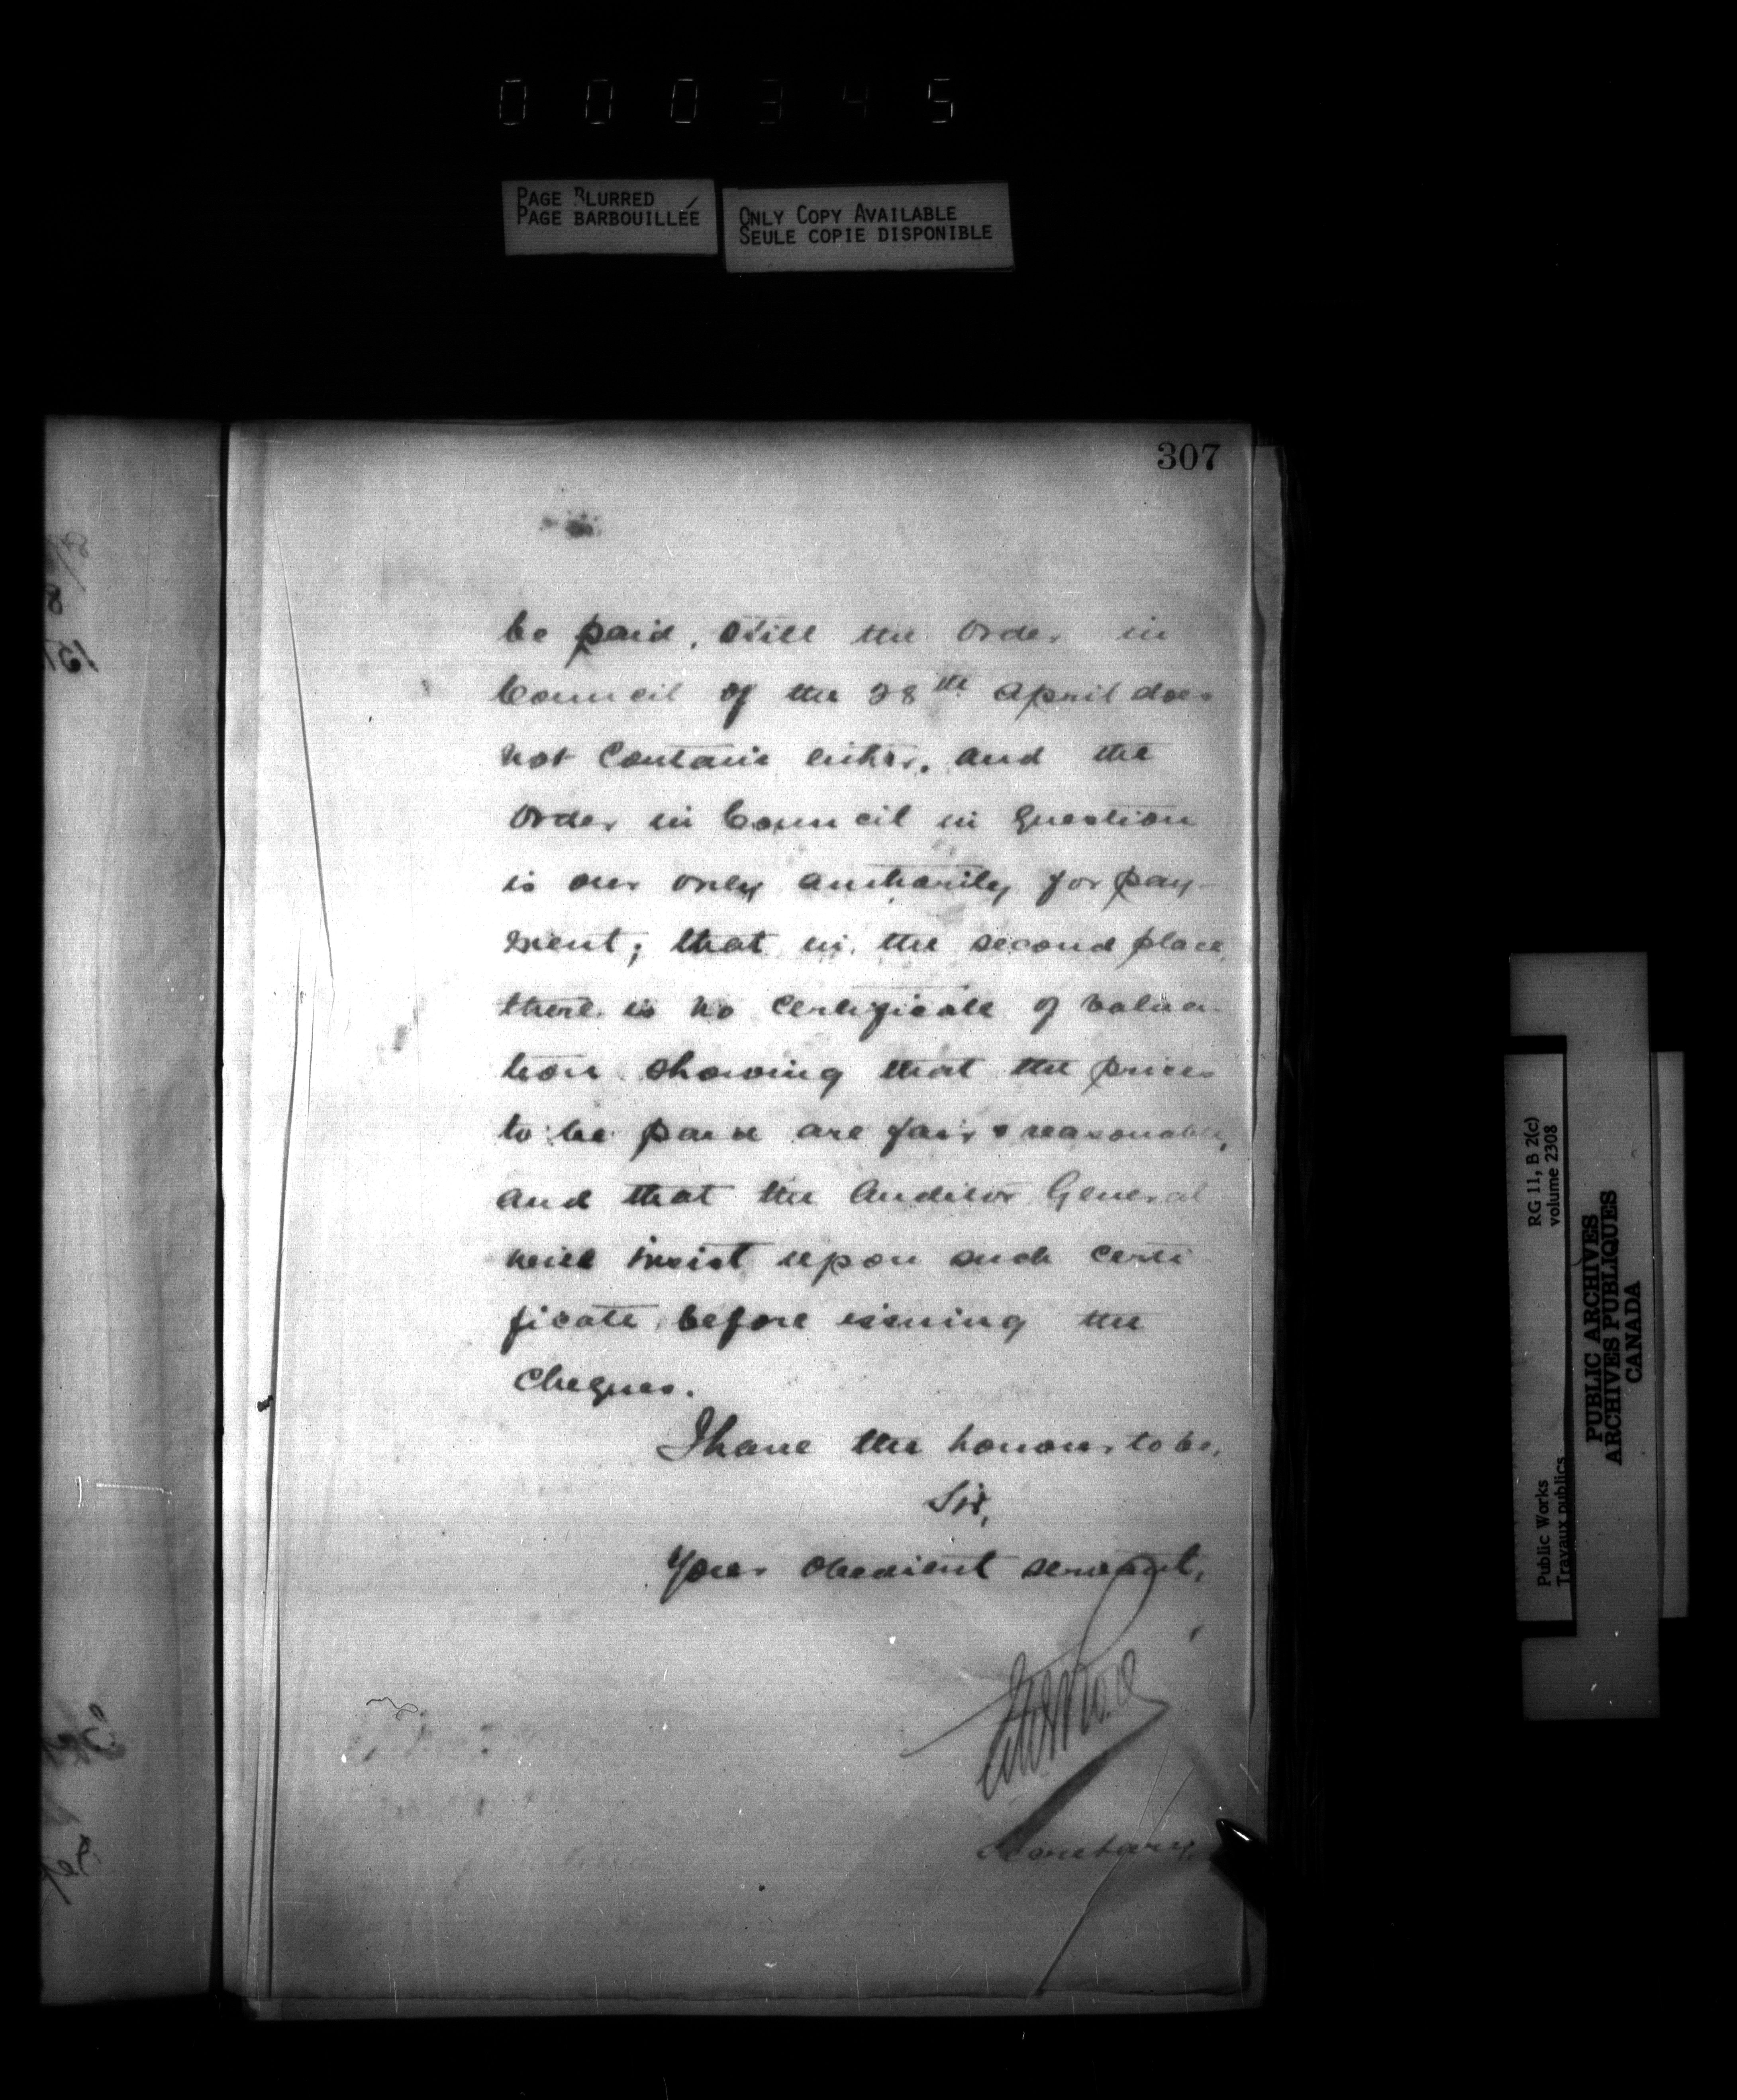 000345
PAGE BLURRED
PAGE BARBOUILLÉE
ONLY COPY AVAILABLE
SEULE COPIE DISPONIBLE
307
be paid, still the Order in
Council of the 28th April does
not contain either, and the
Order in Council in question
is our only authority for pay-
ment; that in the second place,
there is no certificate of valua-
tion showing that the prices
to be paid are fair & reasonable,
and that the Auditor General
will insist upon such certi
ficate before issuing the
cheques.
I have the honour to be,
Sir,
Your obedient servant,
Secretary.
RG 11, B 2(c)
volume 2308
Public Works
Travaux publics
PUBLIC ARCHIVES
ARCHIVES PUBLIQUES
CANADA